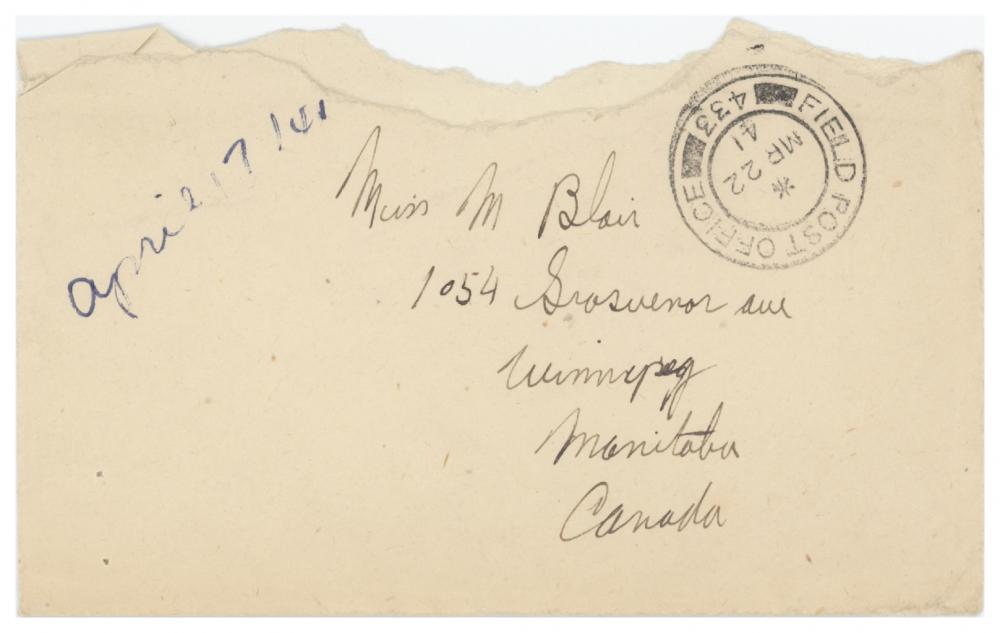 April 17/41
FIELD POST OFFICE
433
*
MR 22
41
Miss M Blair
1054 Grosvenor ave
Winnipeg
Manitoba
Canada